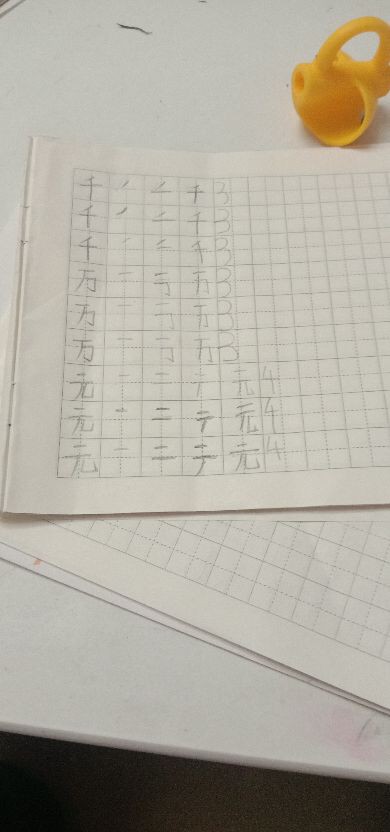 千 ノ 二 千 3
千 ノ 二 千 3
千 ノ 二 千 3
万 一 丂 万 3
万 一 丂 万 3
万 一 丂 万 3
元 一 二 テ 元 4
元 一 二 テ 元 4
元 一 二 テ 元 4